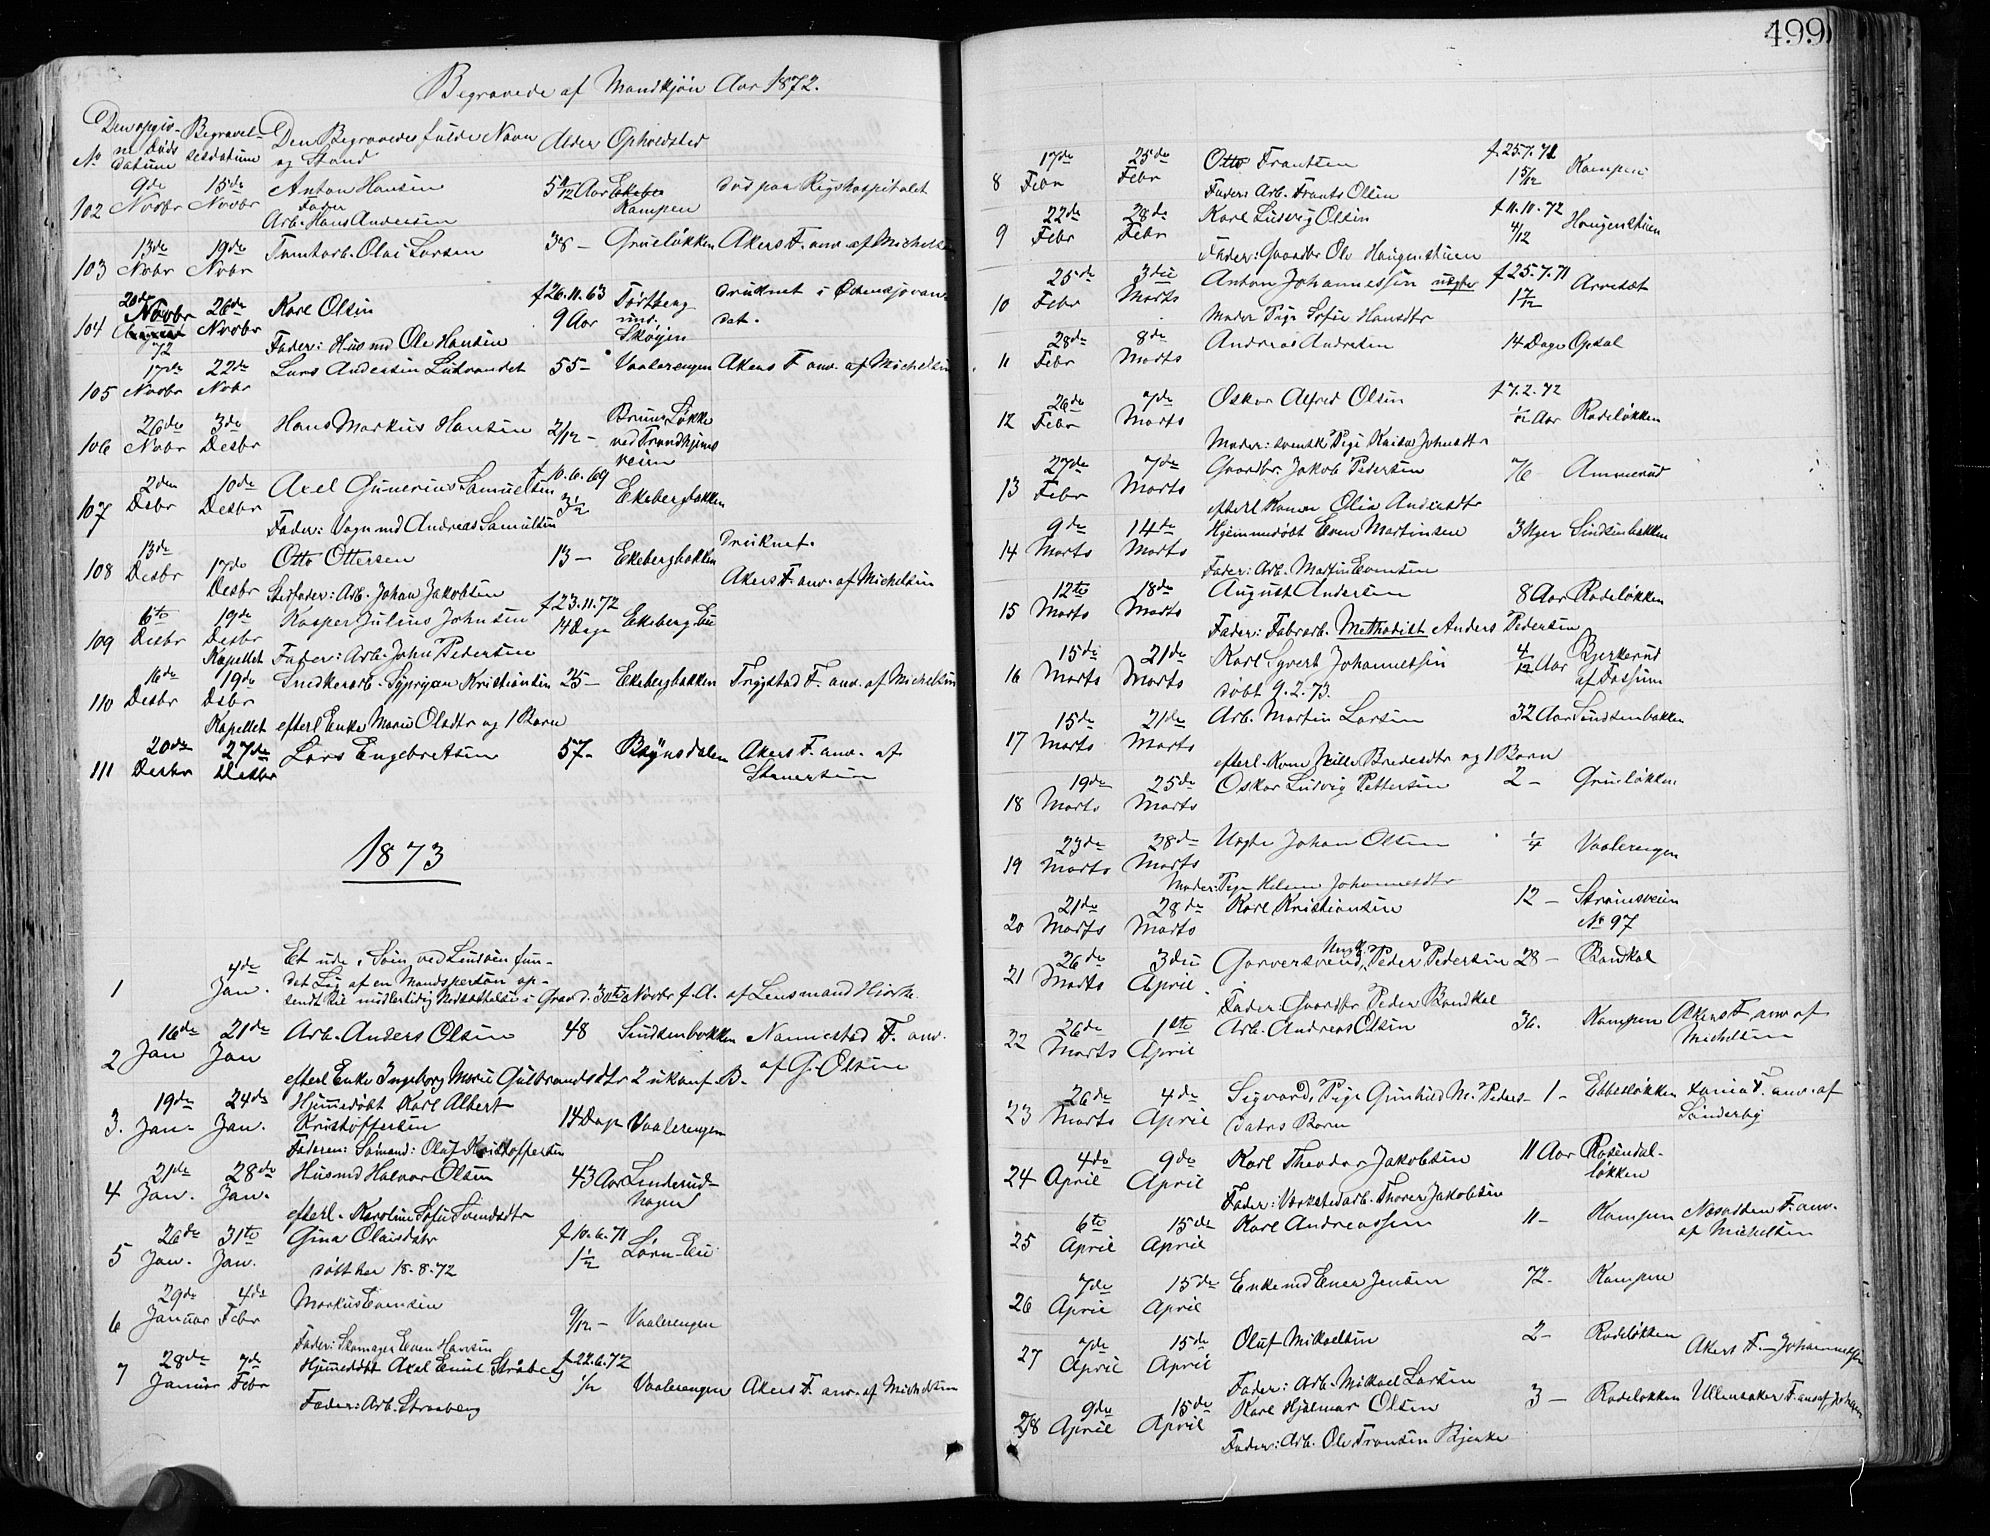 499
Begravede af Mandkjøn Aar 1872.
No Den opgiv- Begravel- Den Begravedes fulde Navn Alder Opholdsted
ne Døds sesdatum og Stand
datum
9de 15de Anton Hansen 5 Aar Død paa Rigshospitalet
102 Novbr Novbr Fader Kampen
Arb. Hans Andersen
13de 19de Olai Larsen 38 – Grueløkken Akers F. anv. af Michelsen
103 Novbr Novbr
20de 26de Karl Olsen f 26.11.63 druknet i
104 Novbr Novbr 9 Aar und. Skøjen
72 Fader: Husmd Ole Hansen
17de 22de Lars Andersen 55 – Vaalerengen Akers F. anv. af Michelsen
105 Novbr Nobr
26de 3de Hans Markus Hansen 2/12 – Bruns Løkke
106 Novbr Desbr ved Trondhjems
veien
2den 10de Axel Gunerius Samuelsen f 10.6.69
107 Desbr Desbr 3½ Ekebergbakken
Fader: Vognmd Andreas Samuelsen
13de 17de Otto Ottersen 13 – Ekebergbakken Druknet.
108 Desbr Desbr Stedfader: Arb. Johan Jakobsen Akers F. anv. af Michelsen
6te 19de Kasper Julius Johnsen f 23.11.72
109 Desbr Desbr 14 Dage Ekeberg Eie
Kapellet Fader: Arb. John Pedersen
16de 19de Snedkerarb. Syprian Kristiansen 25 – Ekebergbakken Trygstad F. anv. af Michelsen
110 Desbr Desbr
Kapellet efterl Enke Marie Olsdtr og 1 Barn
20de 27de Lars Engebretsen 57 – Brynsdalen Akers F. anv. af
111 Desbr Desbr
1873
4de Et ude i Søen ved Lindøen fun-
1 Jan. det Lig af en Mandsperson op-
sendt til midlertidig Nedsættelse i Grav d. 30te Novbr f. A. af Lensmand
16de 21de Arb. Anders Olsen 48 Sindsenbakken Nannestad F. anv.
2 Jan Jan af G. Olsen
efterl Enke Ingeborg Marie Gulbrandsdtr 2 ukonf. B.
19de 24de Hjemmedøbt Karl Albert
3. Jan. Jan. Kristoffersen 14 Dage Vaalerengen
Faderen: Sømand: Oluf Kristoffersen
21de 28de Husmd Halvor Olsen 43 Aar Linderud-
4 Jan. Jan. hagen
efterl. Karoline Sofie Svendsdtr
26de 31te Gina Olaisdatr f 10.6.71
5 Jan. Jan. døbt her 18.8.72 1½ Løren Eie
29de 4de Markus Evensen
6 Januar Febr 9/12 – Vaalerengen
Fader: Skomager Even Hansen
28de 7de Hjemmedøbt Axel Emil Straaberg f 22.6.72
7 Januar Febr Vaalerengen Akers F. anv. af Michelsen
Fader: Arb. Straaberg
17de 25de Otto Frantsen f 25.7.71
8 Febr Febr Kampen
Fader: Arb. Frants Olsen
22de 28de Karl Ludvig Olsen f 11.11.72
9 Febr Febr 4/12 Haugenstuen
Fader: Gaardbr Ole Haugenstuen
25de 3die Anton Johannessen uægte f 25.7.71
10 Febr Marts Arvesæt
Moder Pige Sofie Hansdtr
28de 8de Andreas Andersen 14 Dage Opsal
11 Febr Marts
26de 7de Oskar Alfred Olsen f 7.2.72
12 Febr Marts Aar Rodeløkken
Moder: svensk Pige Kaisa Johnsdtr
27de 7de Gaardbr. Jakob Pedersen 76 – Ammerud
13 Febr Marts
efterl Konen Olia Andersdtr
9de 14de Hjemmedøbt Even Martinsen 3 Uger Sindsenbakken
14 Marts Marts
Fader: Arb. Martin Evensen
12te 18de August Andersen 8 Aar Rodeløkken
15 Marts Marts
Fader: Fabrarb. Methodist Anders Pedersen
15de 21de Karl Syvert Johannessen 4/12 Aar Bjerkerud
16 Marts Marts døbt 9.2.73. af Fossum
15de 21de Arb. Martin Larsen 32 Aar Sindsenbakken
17 Marts Marts
efterl. Kone Mille Bredesdtr og 1 Barn
19de 25de Oskar Ludvig Pettersen 2 – Grueløkken
18 Marts Marts
23de 28de Uægte Johan Olsen ¼ Vaalerengen
19 Marts Marts
Moder: Pige Helene Johannesdtr
21de 28de Karl Kristiansen 12 – Strømsveien
20 Marts Marts No 97
26de 3die Garversvend, Peder Pedersen 28 – Bondkal
21 Marts April
Fader: Gaardbr Peder Bondkal
26de 1ste Arb. Andreas Olsen 36. Kampen Akers F. anv af
22 Marts April Michelsen
26de 4de Sigvard, Pige Gunhild M. Peders- 1 – Ebbeløkken F. anv. af
23 Marts April datrs Barn Sønderby
4de 9de Karl Theodor Jakobsen 11 Aar Rosendal-
24 April April løkken
Fader: Værkstedarb. Thorer Jakobsen
6te 15de Karl Andreassen 11 – Kampen Næsodden F. anv.
25 April April af Michelsen
7de 15de Enkemd Even Jensen 72 – Kampen
26 April April
7de 15de Oluf Mikaelsen 2 – Rodeløkken Akers F. – Johannessen
27 April April
Fader: Arb. Mikael Larsen
9de 15de Karl Hjalmar Olsen 3 – Rodeløkken Ullensaker F. anv af
28 April April
Fader: Arb. Ole Frantsen Bjerke